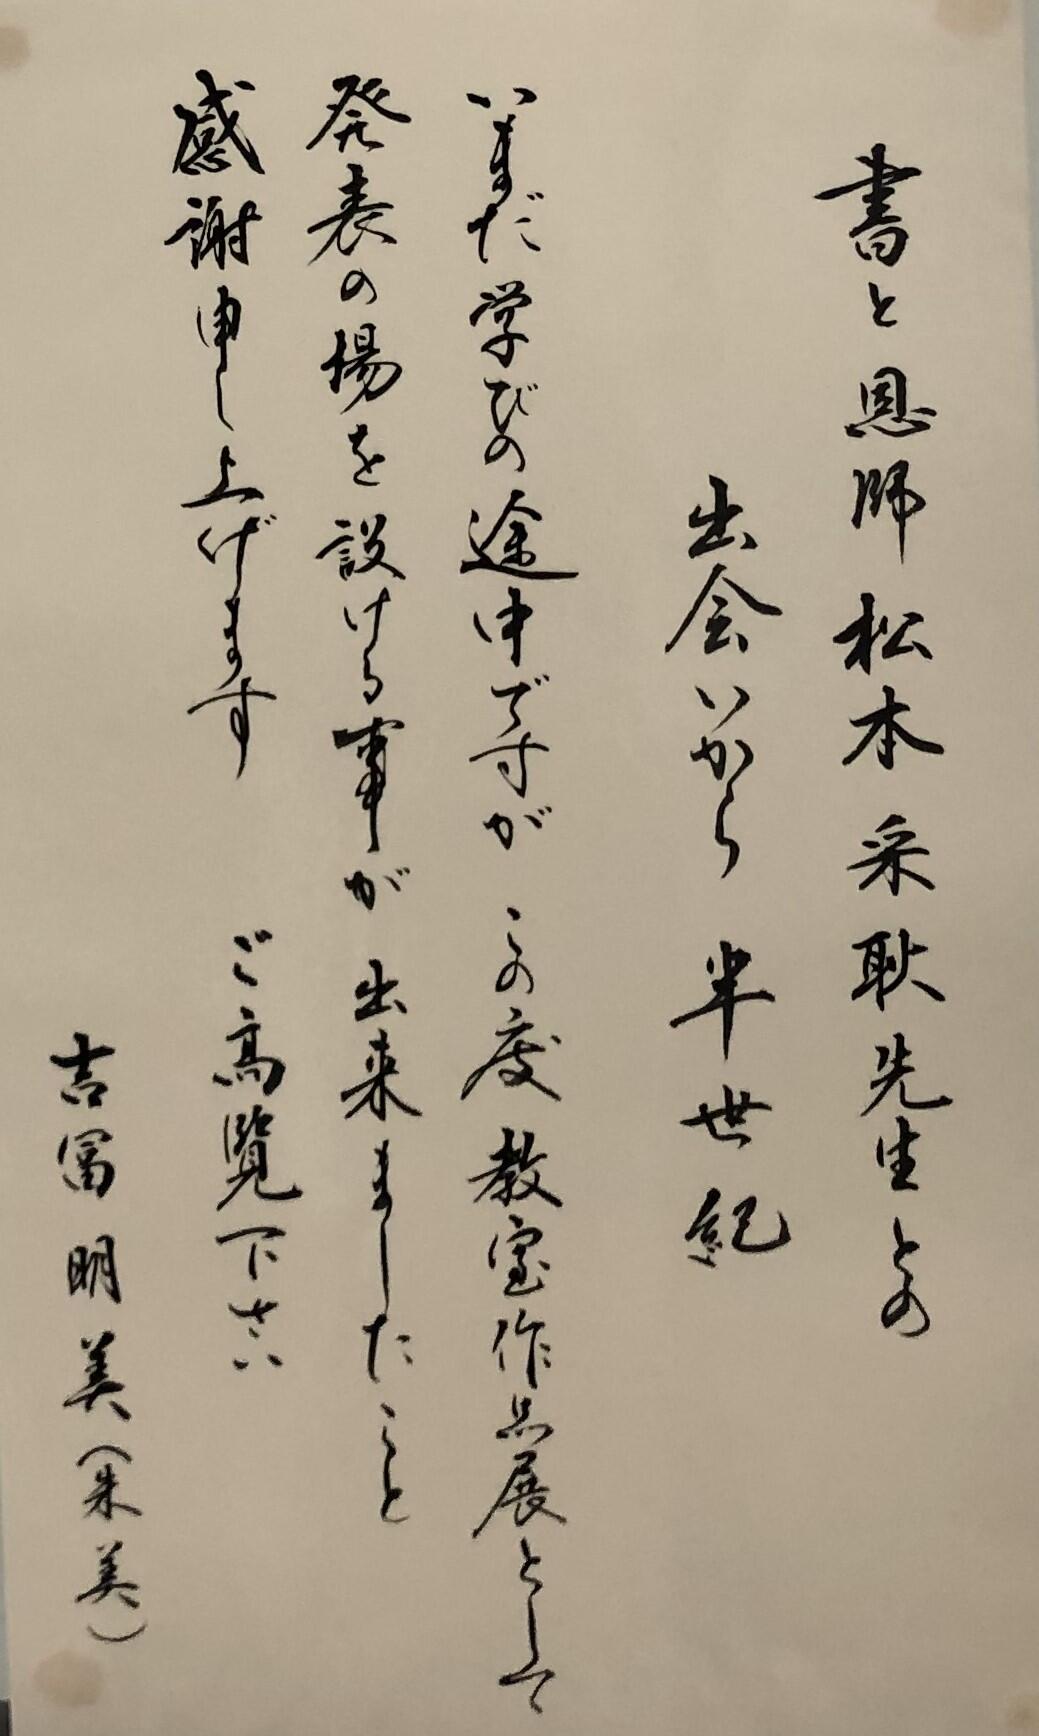 書と恩師 松本采耿先生との
出会いから 半世紀
いまだ学びの途中ですが この度 教室作品展として
発表の場を設ける事が 出来ましたこと
感謝申し上げます ご高覧下さい
吉冨明美(朱美)